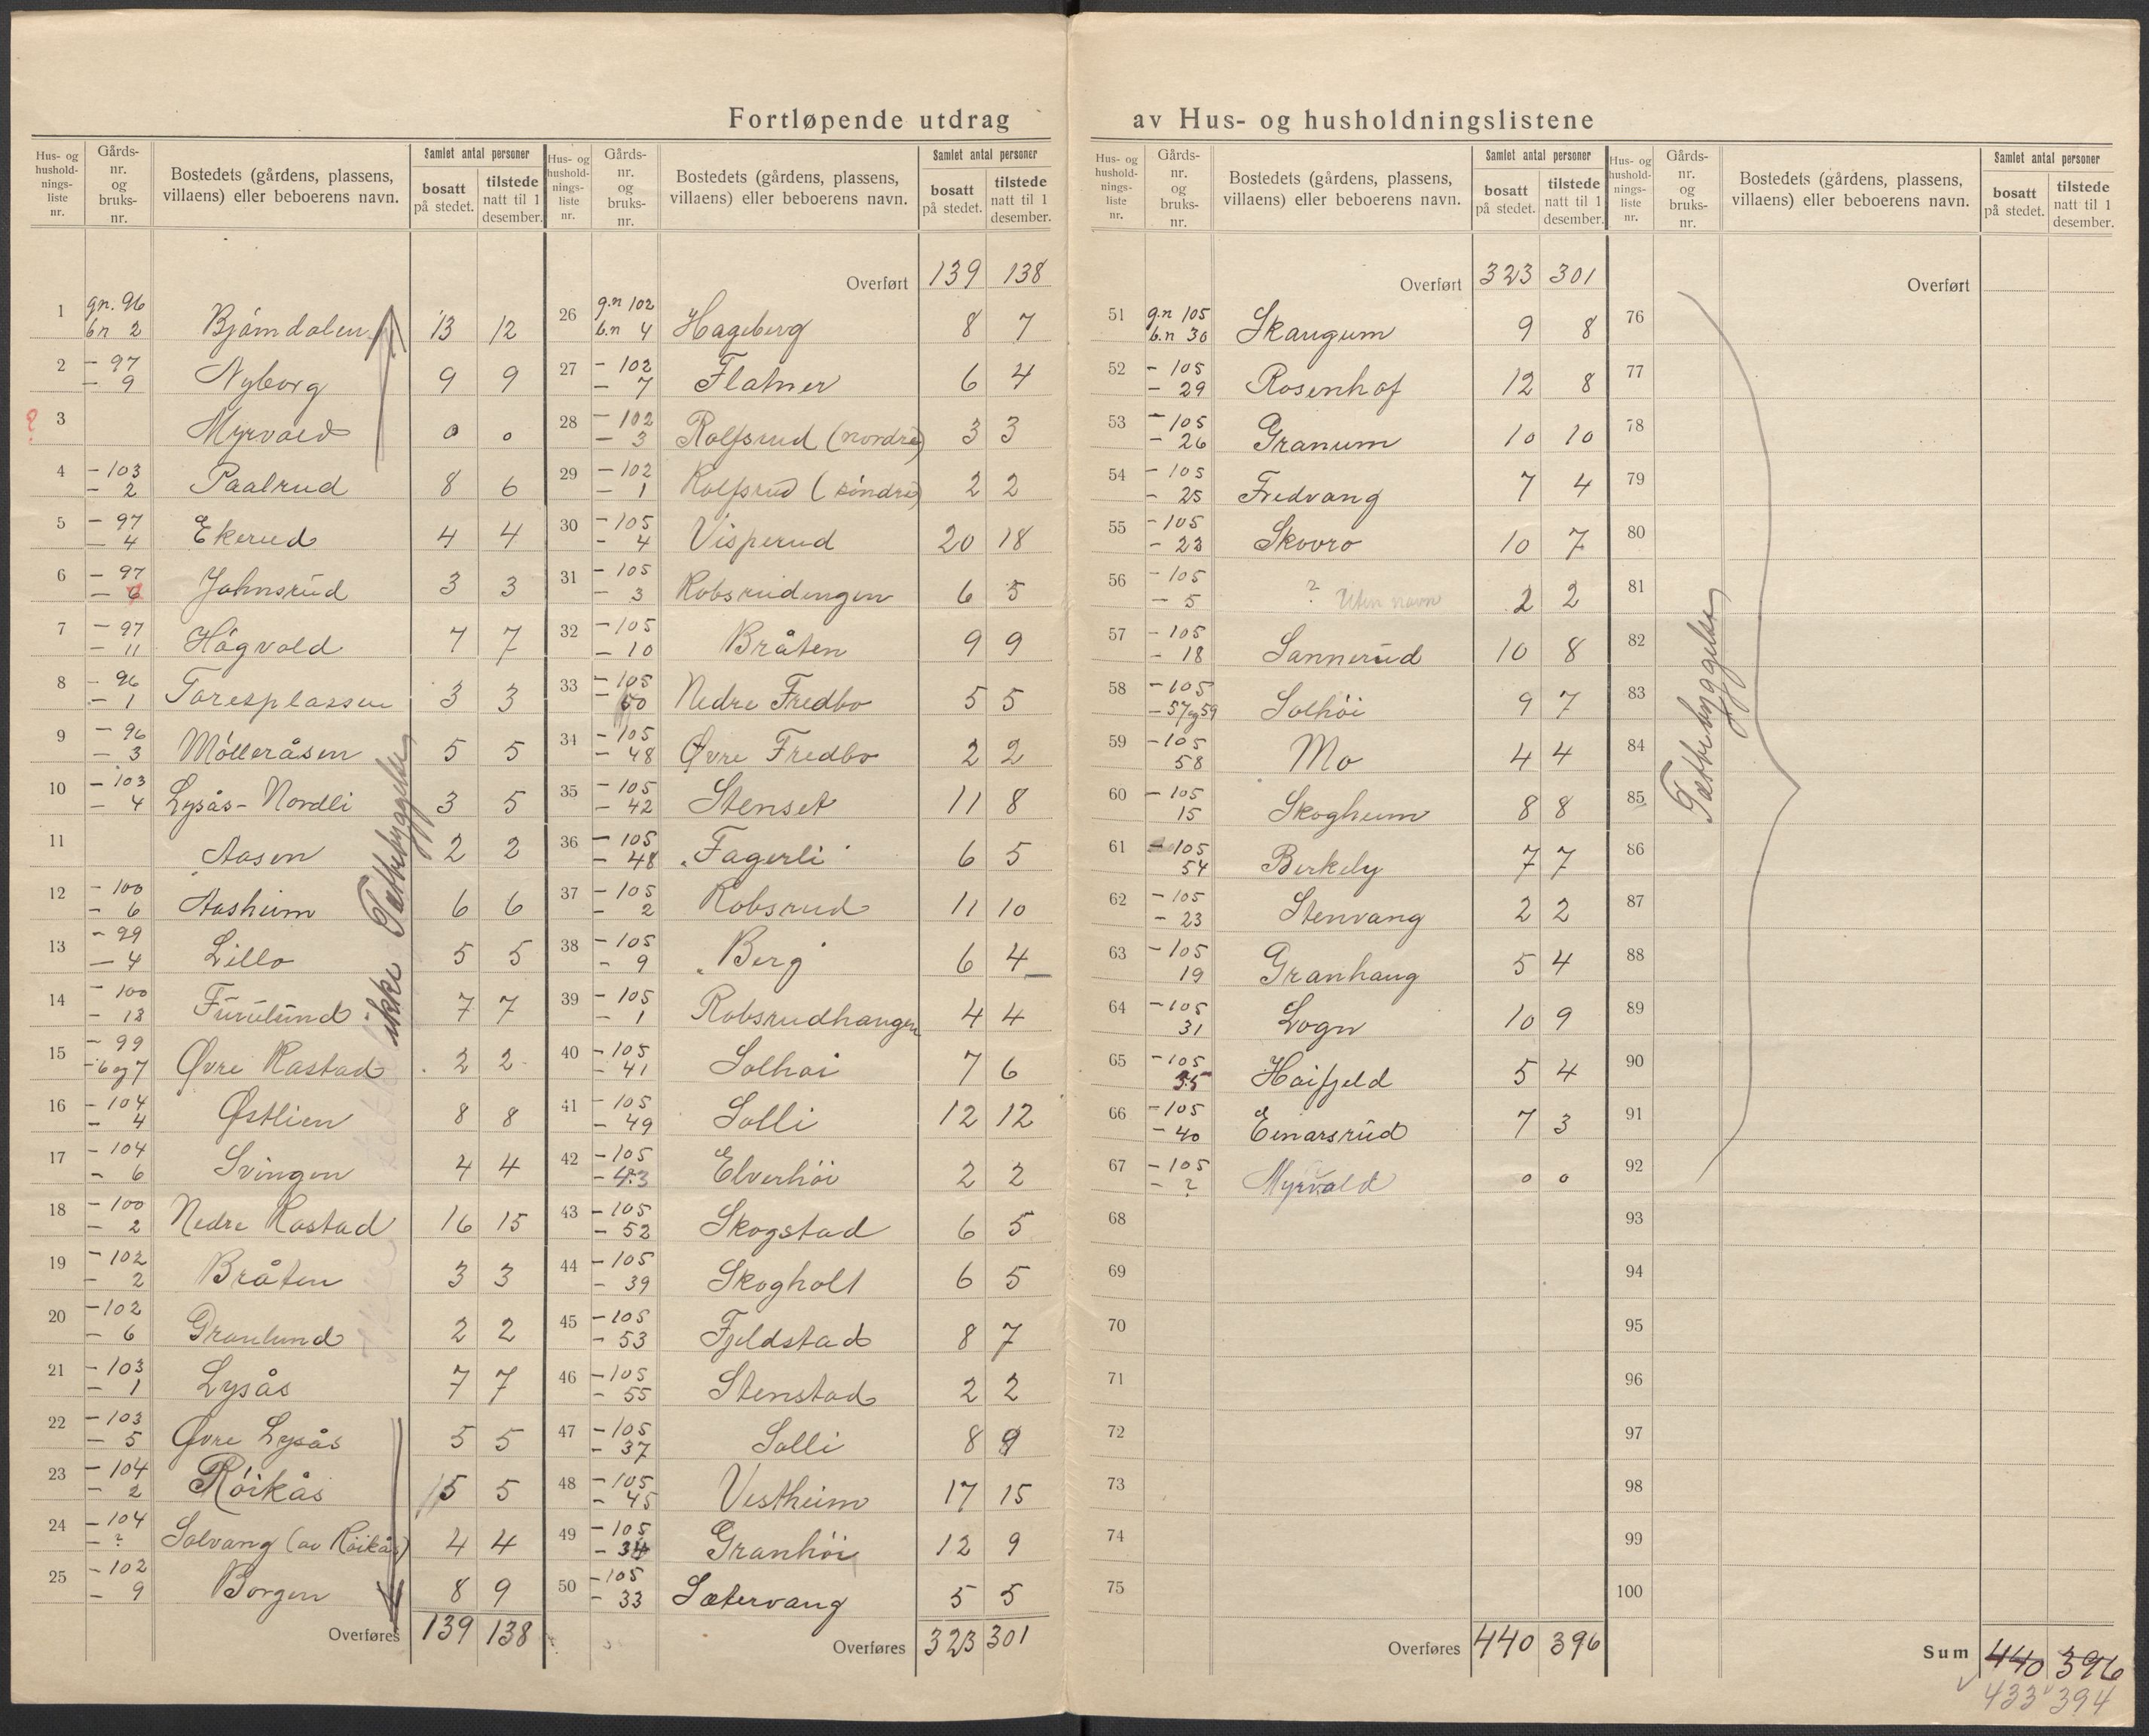 Fortløpende utdrag av Hus- og husholdningslistene
Hus- og hushold-nings-liste nr. | Gårds-nr. og bruks-nr. | Bostedets (gårdens, plassens, villaens) eller beboerens navn. | Samlet antal personer | bosatt på stedet. | tilstede natt til 1 desember.
1 gn. 96 bn 2 Bjørndalen 13 12
2 - 97 - 9 Nyborg 9 9
? 3 Myrvold 0 0
4 - 103 - 2 Paalrud 8 6
5 - 97 - 4 Ekerud 4 4
6 - 97 - 6 Johnsrud 3 3
7 - 97 - 11 Högvold 7 7
8 - 96 - 1 Toresplassen 3 3
9 - 96 - 3 Mölleråsen 5 5
10 - 103 - 4 Lysås-Nordli 3 5
11 Aasen 2 2
12 - 100 - 6 Aasheim 6 6
13 - 99 - 4 Lillo 5 5
14 - 100 - 13 Furulund 7 7
15 - 99 - 6 og 7 Øvre Rastad 2 2
16 - 104 - 4 Østlien 8 8
17 - 104 - 6 Svingen 4 4
18 - 100 - 2 Nedre Rastad 16 15
19 - 102 - 2 Bråten 3 3
20 - 102 - 6 Granlund 2 2
21 - 103 - 1 Lysås 7 7
22 - 103 - 5 Øvre Lysås 5 5
23 - 104 - 2 Röikås 5 5
24 - 104 - ? Solvang (av Röikås) 4 4
25 - 102 - 9 Borgen 8 9
Overføres 139 138
ikke Tættbebyggelse
Hus- og hushold-nings-liste nr. | Gårds-nr. og bruks-nr. | Bostedets (gårdens, plassens, villaens) eller beboerens navn. | Samlet antal personer | bosatt på stedet. | tilstede natt til 1 desember.
Overført 139 138
26 g.n 102 b.n 4 Hageberg 8 7
27 - 102 - 7 Flatner 6 4
28 - 102 - 3 Rolfsrud (nordre) 3 3
29 - 102 - 1 Rolfsrud (söndre) 2 2
30 - 105 - 4 Visperud 20 18
31 - 105 - 3 Robsrudengen 6 5
32 - 105 - 10 Bråten 9 9
33 - 105 - 60 Nedre Fredbo 5 5
34 - 105 - 48 Øvre Fredbo 2 2
35 - 105 - 42 Stenset 11 8
36 - 105 - 48 Fagerli 6 5
37 - 105 - 2 Robsrud 11 10
38 - 105 - 9 Berg 6 4
39 - 105 - 1 Robsrudhaugen 4 4
40 - 105 - 41 Solhøi 7 6
41 - 105 - 49 Solli 12 12
42 - 105 - 43 Elverhöi 2 2
43 - 105 - 52 Skogstad 6 5
44 - 105 - 39 Skogholt 6 5
45 - 105 - 53 Fjeldstad 8 7
46 - 105 - 55 Stenstad 2 2
47 - 105 - 37 Solli 8 9
48 - 105 - 45 Vestheim 17 15
49 - 105 - 34 Granhöi 12 9
50 - 105 - 33 Sætervang 5 5
Overføres 323 301
Hus- og hushold-nings-liste nr. | Gårds-nr. og bruks-nr. | Bostedets (gårdens, plassens, villaens) eller beboerens navn. | Samlet antal personer | bosatt på stedet. | tilstede natt til 1 desember.
Overført 323 301
51 g.n 105 b.n 30 Skaugum 9 8
52 - 105 - 29 Rosenhof 12 8
53 - 105 - 26 Granum 10 10
54 - 105 - 25 Fredvang 7 4
55 - 105 - 22 Skovro 10 7
56 - 105 - 5 ? Uten navn 2 2
57 - 105 - 18 Sannerud 10 8
58 - 105 - 57 og 59 Solhöi 9 7
59 - 105 58 Mo 4 4
60 - 105 15 Skogheim 8 8
61 - 105 54 Berkely 7 7
62 - 105 - 23 Stenvang 2 2
63 - 105 19 Granhaug 5 4
64 - 105 31 Logn 10 9
65 - 105 35 Høifjeld 5 4
66 - 105 - 40 Einarsrud 7 3
67 - 105 - ? Myrvold 0 0
68
69
70
71
72
73
74
75
Overføres 440 396
Hus- og hushold-nings-liste nr. | Gårds-nr. og bruks-nr. | Bostedets (gårdens, plassens, villaens) eller beboerens navn. | Samlet antal personer | bosatt på stedet. | tilstede natt til 1 desember.
Overført
76
77
78
79
80
81
82
83
84
85
86
87
88
89
90
91
92
93
94
95
96
97
98
99
100
Tættbebyggelse
Sum 440 396
433 394